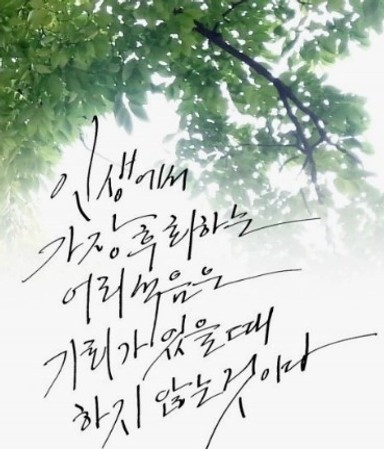 인생에서
가장 후회하는
어리석음은
기회가 있을 때
하지 않는 것이다